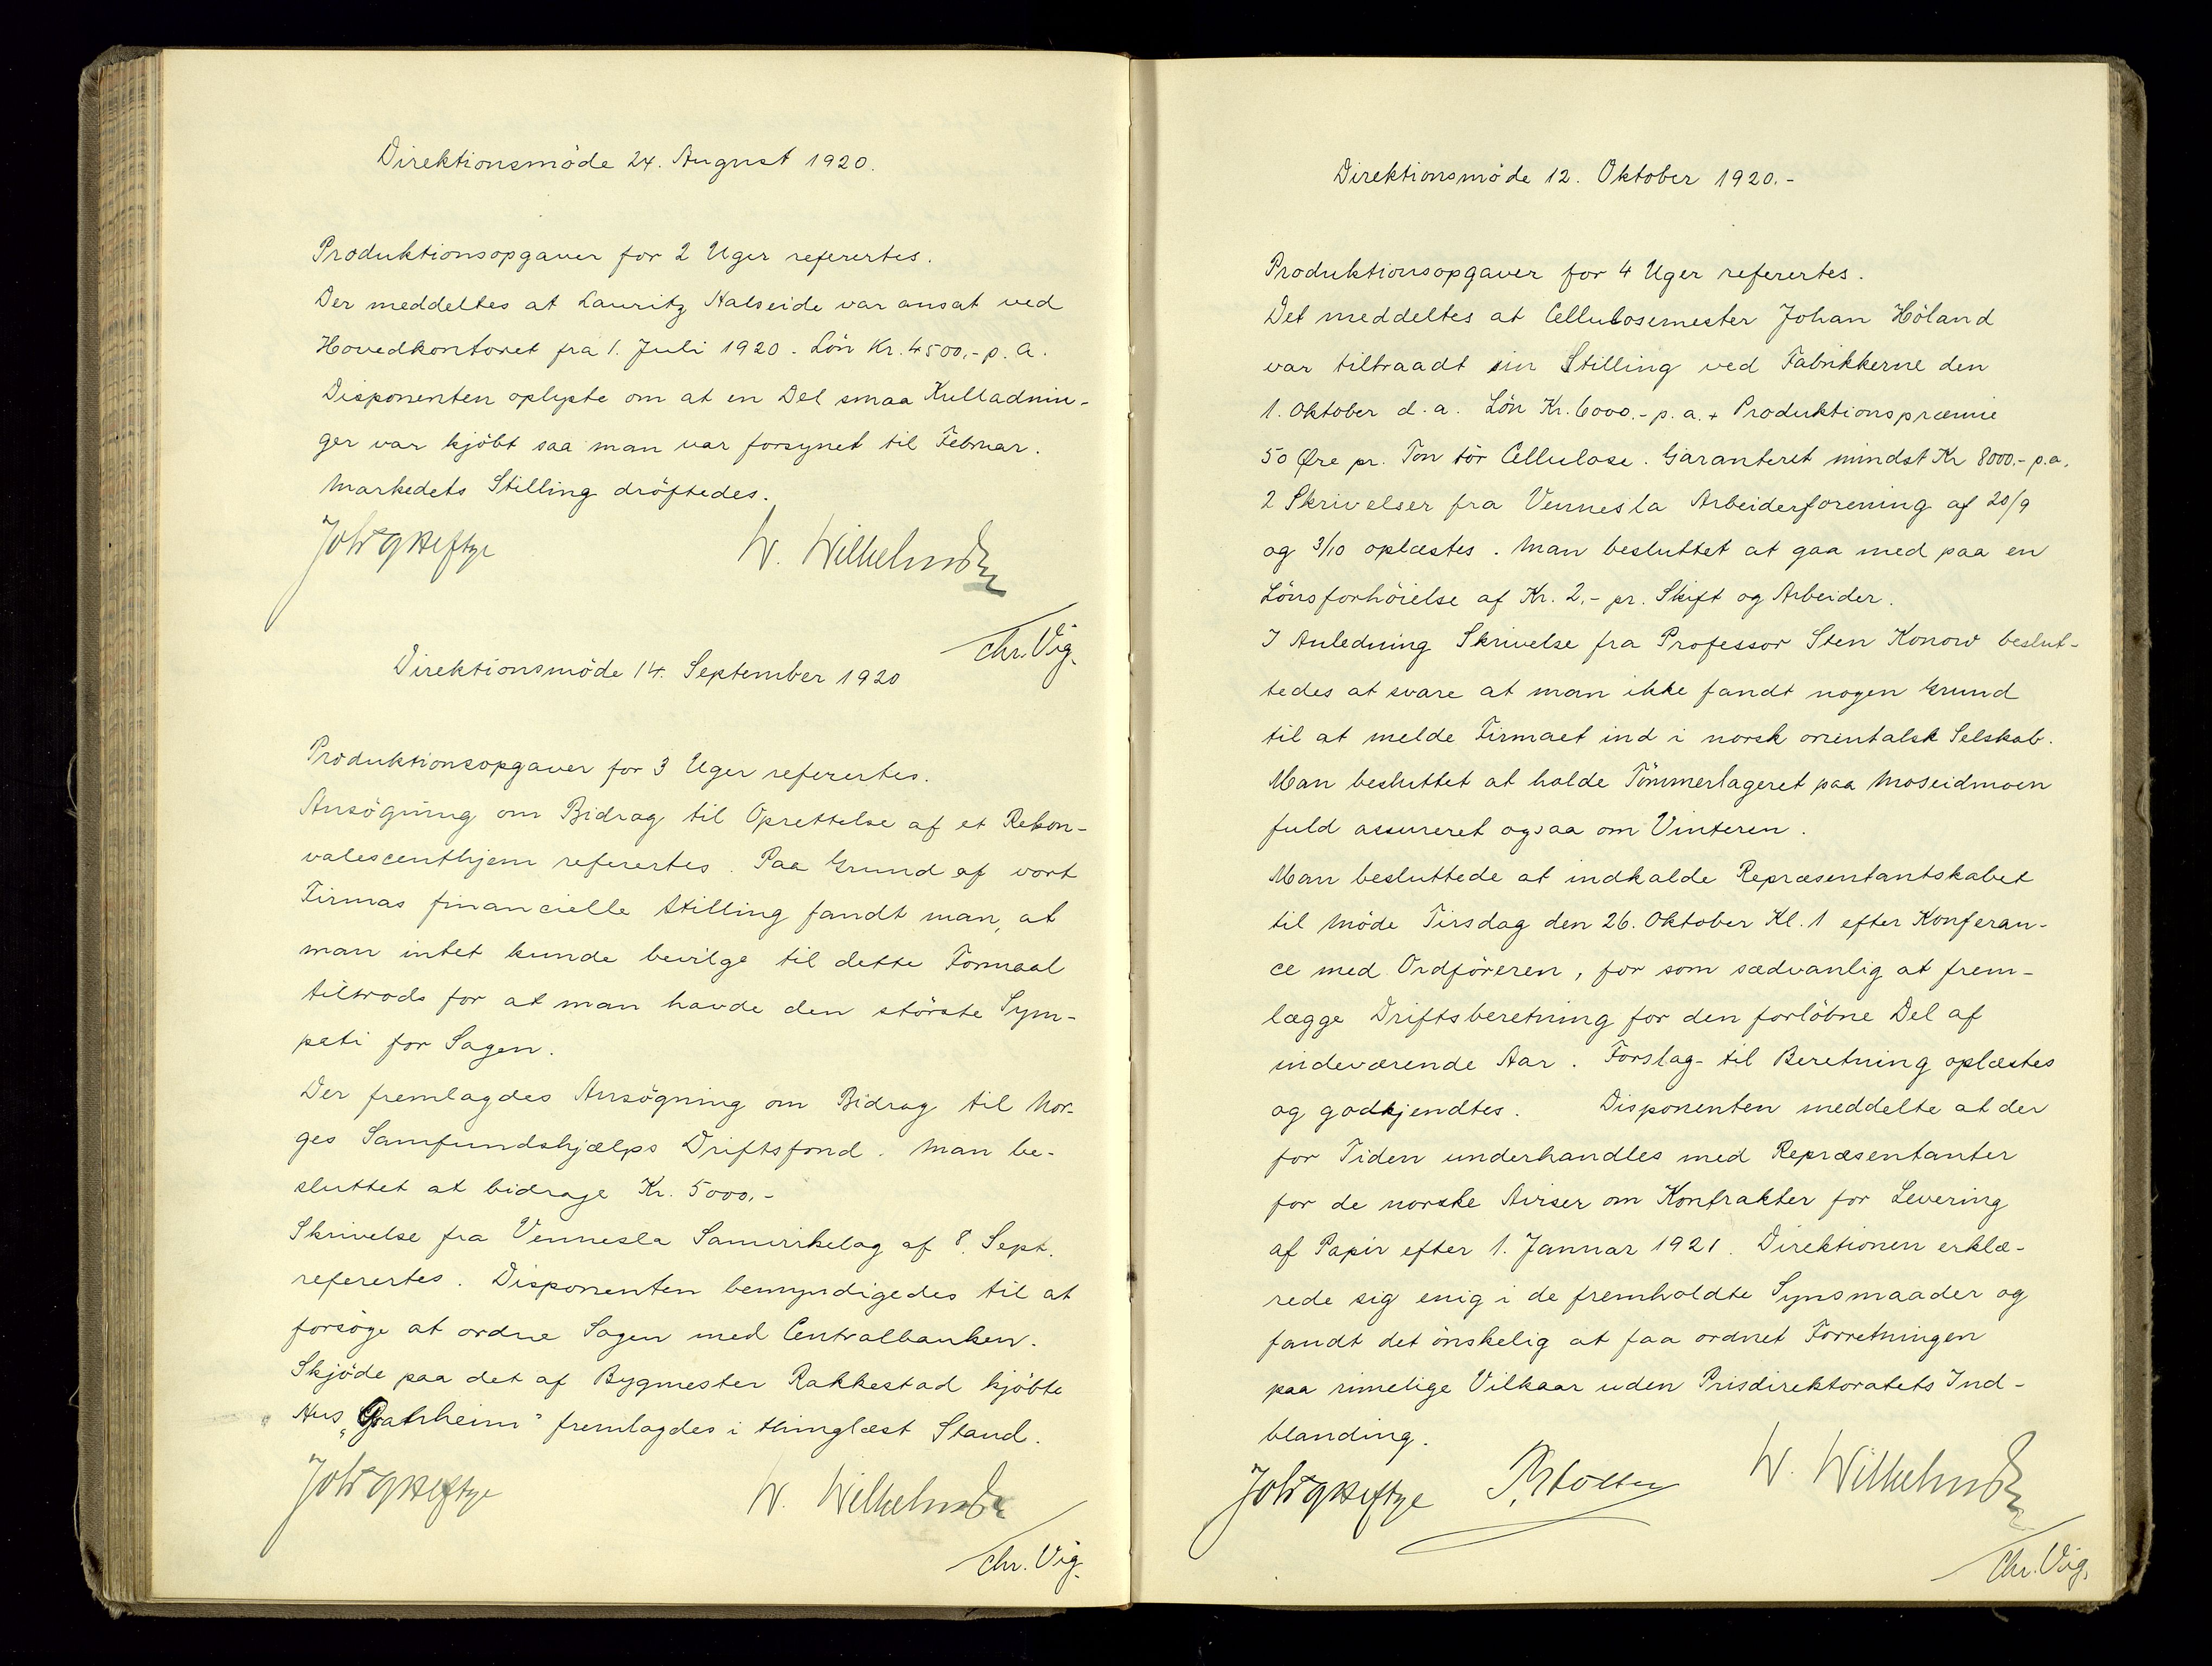 Direktionsmöde 24. August 1920.
Produktionsopgaver for 2 Uger referertes.
Der meddeltes at Lauritz Halseide var ansat ved
Hovedkontoret fra 1. Juli 1920. Lön Kr. 4500,- p. a.
Disponenten oplyste om at en Del smaa Kulladnin-
ger var kjöbt saa man var forsynet til Februar.
Markedets Stilling dröftedes.
Joh. G. Heftye W. Wilhelmsen
Chr. Vig.
Direktionsmöde 14. September 1920
Produktionsopgaver for 3 Uger referertes.
Ansögning om Bidrag til Oprettelse af et Rekon-
valescenthjem referertes. Paa Grund af vort
Firmas financielle Stilling fandt man, at
man intet kunde bevilge til dette Formaal
tiltrods for at man havde den störste Sym-
pati for Sagen.
Der fremlagdes Ansögning om Bidrag til Nor-
ges Samfundshjælps Driftsfond. Man be-
sluttet at bidrage Kr. 5000,-
Skrivelse fra Vennesla Samvirkelag af 8. Sept.
referertes. Disponenten bemyndigedes til at
forsöge at ordne Sagen med Centralbanken.
Skjöde paa det af Bygmester Rakkestad kjöbte
Hus fremlagdes i thinglæst Stand.
Joh. G. Heftye W. Wilhelmsen
Chr. Vig.
Direktionsmöde 12. Oktober 1920.-
Produktionsopgaver for 4 Uger referertes.
Det meddeltes at Cellulosemester Johan Höland
var tiltraadt sin Stilling ved Fabrikkerne den
1. Oktober d. a. Lön Kr. 6000.- p. a. + Produktionspræmie
50 Øre pr. Ton tör Cellulose. Garanteret mindst Kr 8000.- p.a.
2 Skrivelser fra Vennesla Arbeiderforening af 20/9
og 3/10 oplæstes. Man besluttet at gaa med paa en
Lönsforhöielse af Kr. 2.- pr. Skift og Arbeider.
I Anledning Skrivelse fra Professor Sten Konow beslut-
tedes at svare at man ikke fandt nogen Grund
til at melde Firmaet ind i norsk orientalsk Selskab.
Man besluttet at holde Tömmerlageret paa Moseidmoen
fuld assureret ogsaa om Vinteren.
Man besluttede at indkalde Repræsentantskabet
til Möde Tirsdag den 26. Oktober Kl. 1 efter Konferan-
ce med Ordföreren, for som sædvanlig at frem-
lægge Driftsberetning for den forlöbne Del af
indeværende Aar. Forslag til Beretning oplæstes
og godkjendtes. Disponenten meddelte at der
for Tiden underhandles med Repræsentanter
for de norske Aviser om Kontrakter for Levering
af Papir efter 1. Januar 1921. Direktionen erklæ-
rede sig enig i de fremholdte Synsmaader og
fandt det önskelig at faa ordnet Forretningen
paa rimelige Vilkaar uden Prisdirektoratets Ind-
blanding.
Joh. G. Heftye W. Wilhelmsen
Chr. Vig.